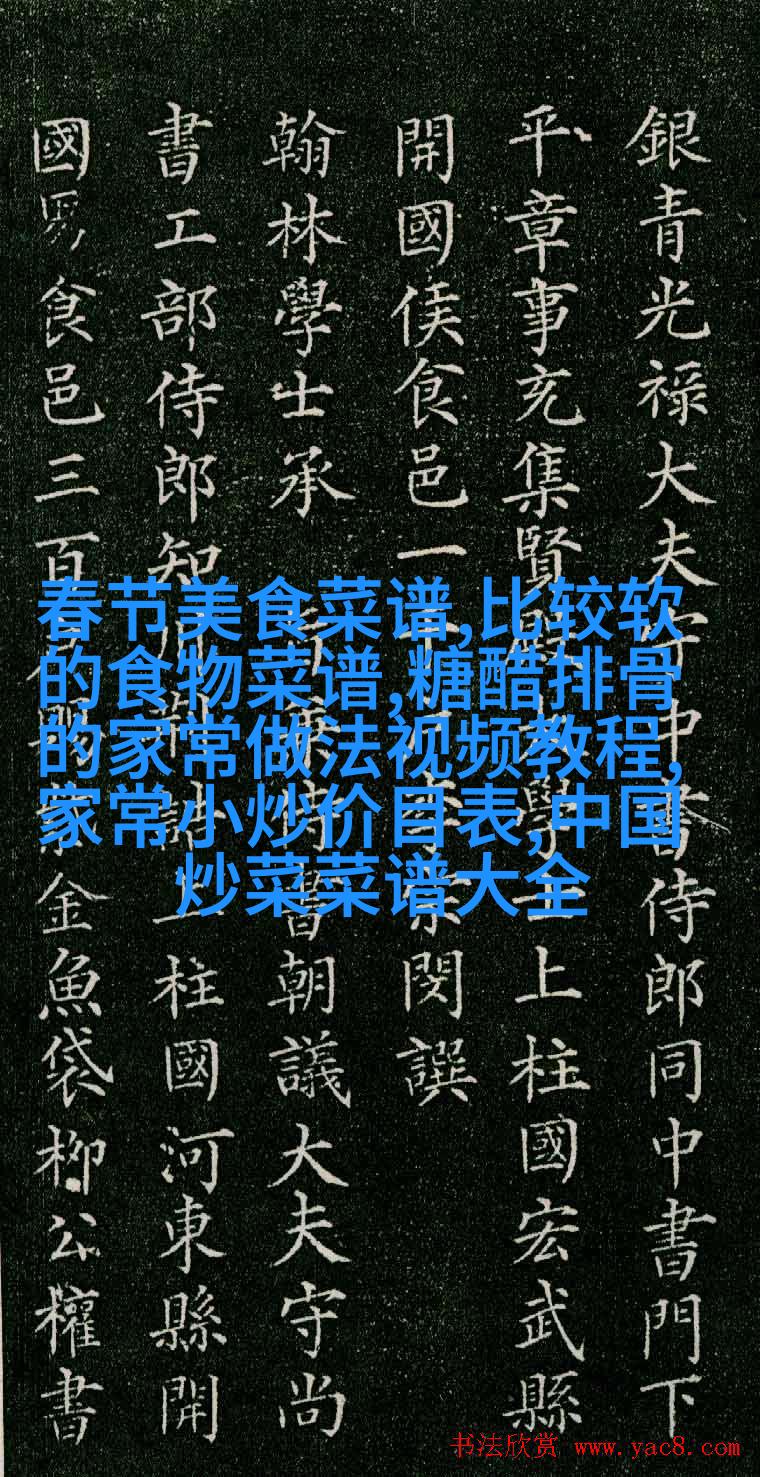 銀青光祿大夫守中書侍郎同中書門下
平章事充集賢學士上柱國宏武縣
開國侯食邑一李宗閔撰
翰林學士承旨侍書朝議大夫守尚
書工部侍郎知制誥上柱國河東縣開
國男食邑三百賜金魚袋柳公權書
春节美食菜谱,比较软
的食物菜谱,糖醋排骨
的家常做法视频教程,
家常小炒价目表,中国
炒菜菜谱大全
书法欣赏 www.yac8.com